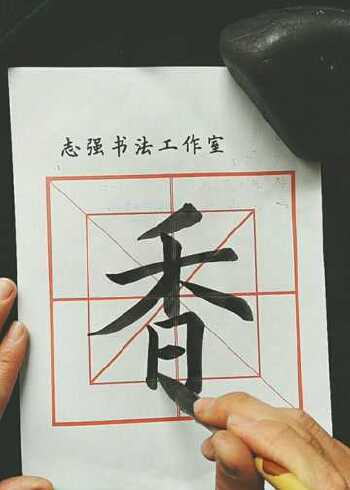 志强书法工作室
香